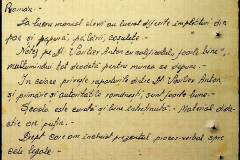 Română:
La lucru manual elevii au lucrat diferite împletituri din
pae și papură, păltării, coșulețe.
Notez pe Dl. Vasilier Anton cu calificativul „foarte bine"
mulțumindu-i tot deodată pentru munca ce depune.
In ceiace privește raporturile dintre Dl. Vasilier Anton
și primărie și autoritățile românești, sunt foarte bune.
Școala este curată și bine întreținută. Material didac-
tic are puțin.
Drept care am încheiat prezentul proces-verbal spre
cele legale.